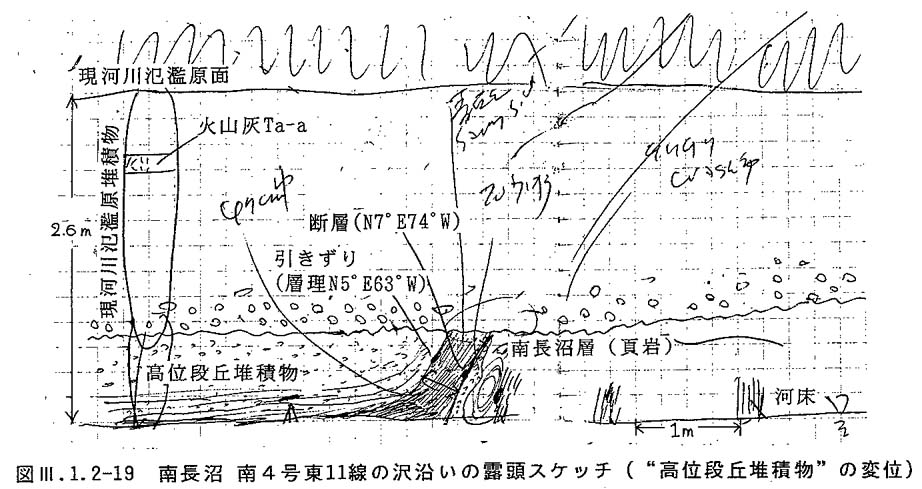 現河川氾濫原面
火山灰Ta-a
現河川氾濫原堆積物
2.6m
断層(N7°E74°W)
引きずり
(層理N5°E63°W)
南長沼層(頁岩)
高位段丘堆積物
河床
1m
図Ⅲ.1.2-19 南長沼 南4号東11線の沢沿いの露頭スケッチ(“高位段丘堆積物”の変位)